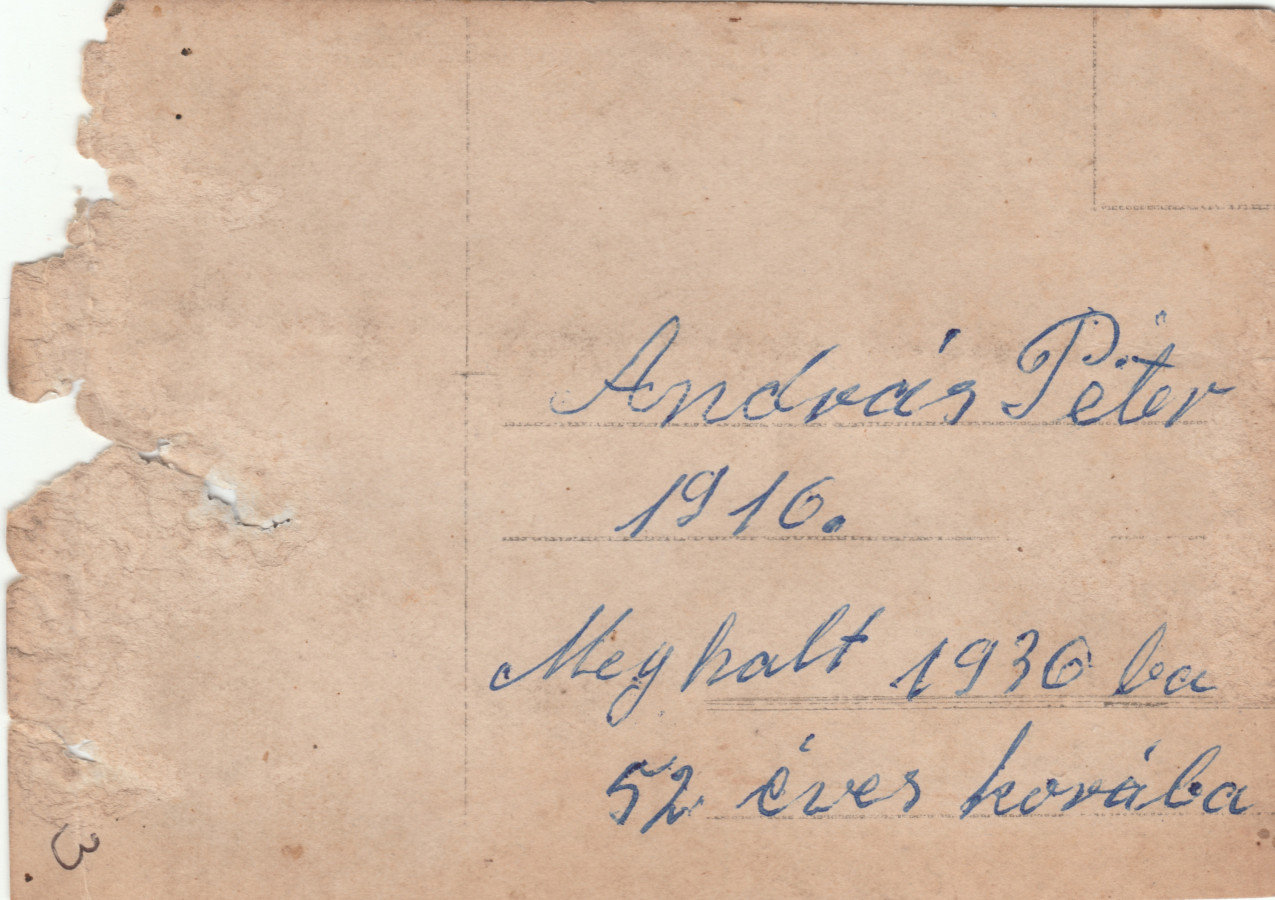 András Péter
1916.
Meghalt 1936 ba
52 éves korába
3